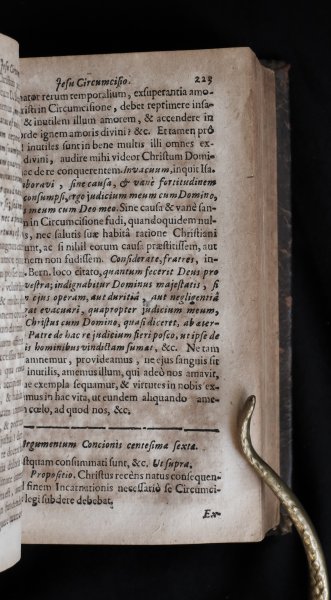 Jesu Circumcisio. 223
mator rerum temporalium, exsuperantia amo-
risti in Circumcisione, debet reptimere insa-
& inutilem illum amorem, & accendere in
orde ignem amoris divini &c. Et tamen prô
inutiles sunt in bene multis illi omnes ex-
divini, audire mihi videor Christum Domi-
ac de re conquerentem. Invacuum, inquit Isa.
boravi, sine causa, & vanè fortitudinem
consumpsi, ergo judicium meum cum Domino,
meum cum Deo meo. Sine causa & vanè san-
in Circumcisione fudi, quandoquidem nul-
is, nec salutis suæ habitâ ratione Christiani
unt, ac si nihil eorum causa præstitissem, aut
nem non fudissem. Considerate, fratres, in-
Bern. loco citato, quantum fecerit Deus pro
vestra; indignabitur Dominus majestatis, si
n ejus operam, aut duritiâ, aut negligentiâ
rat evacuari, quapropter judicium meum,
Christus cum Domino, quasi diceret, ab æter-
Patre de hac re judicium fieri posco, ut ipse de
is hominibus vindictam sumat, &c. Ne tam
amnemur, provideamus, ne ejus sanguis sit
inutilis, amemus illum, qui adeò nos amavit,
ne exempla sequamur, & virtutes in nobis ex-
mus in hac vita, ut eundem aliquando ame-
n cœlo, ad quod nos, &c.
Argumentum Concionis centesima sexta.
stquam consummati sunt, &c. Ut supra.
Propositio. Christus recèns natus consequen-
d finem Incarnationis necessariò se Circumci-
legi subdere debebat.
Ex-